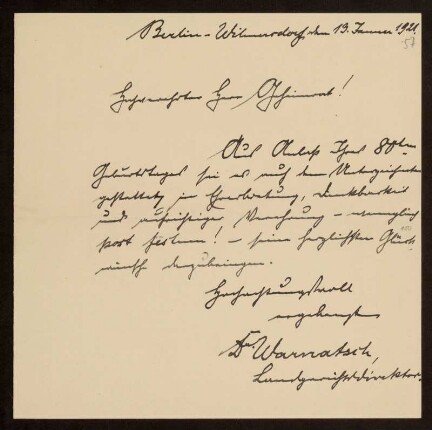 Berlin-Wilmersdorf, den 13. Januar 1921.
57
Hochverehrter Herr Geheimrat!
Aus Anlaß Ihres 80sten
Geburtstages sei es auch dem Unterzeichneten
gestattet, in Ehrerbietung, Dankbarkeit
und aufrichtiger Verehrung –
post festum! – seine herzlichsten Glück-
wünsche darzubringen.
Hochachtungsvoll
ergebenst
Dr. Warnatsch,
Landgerichtsdirektor.